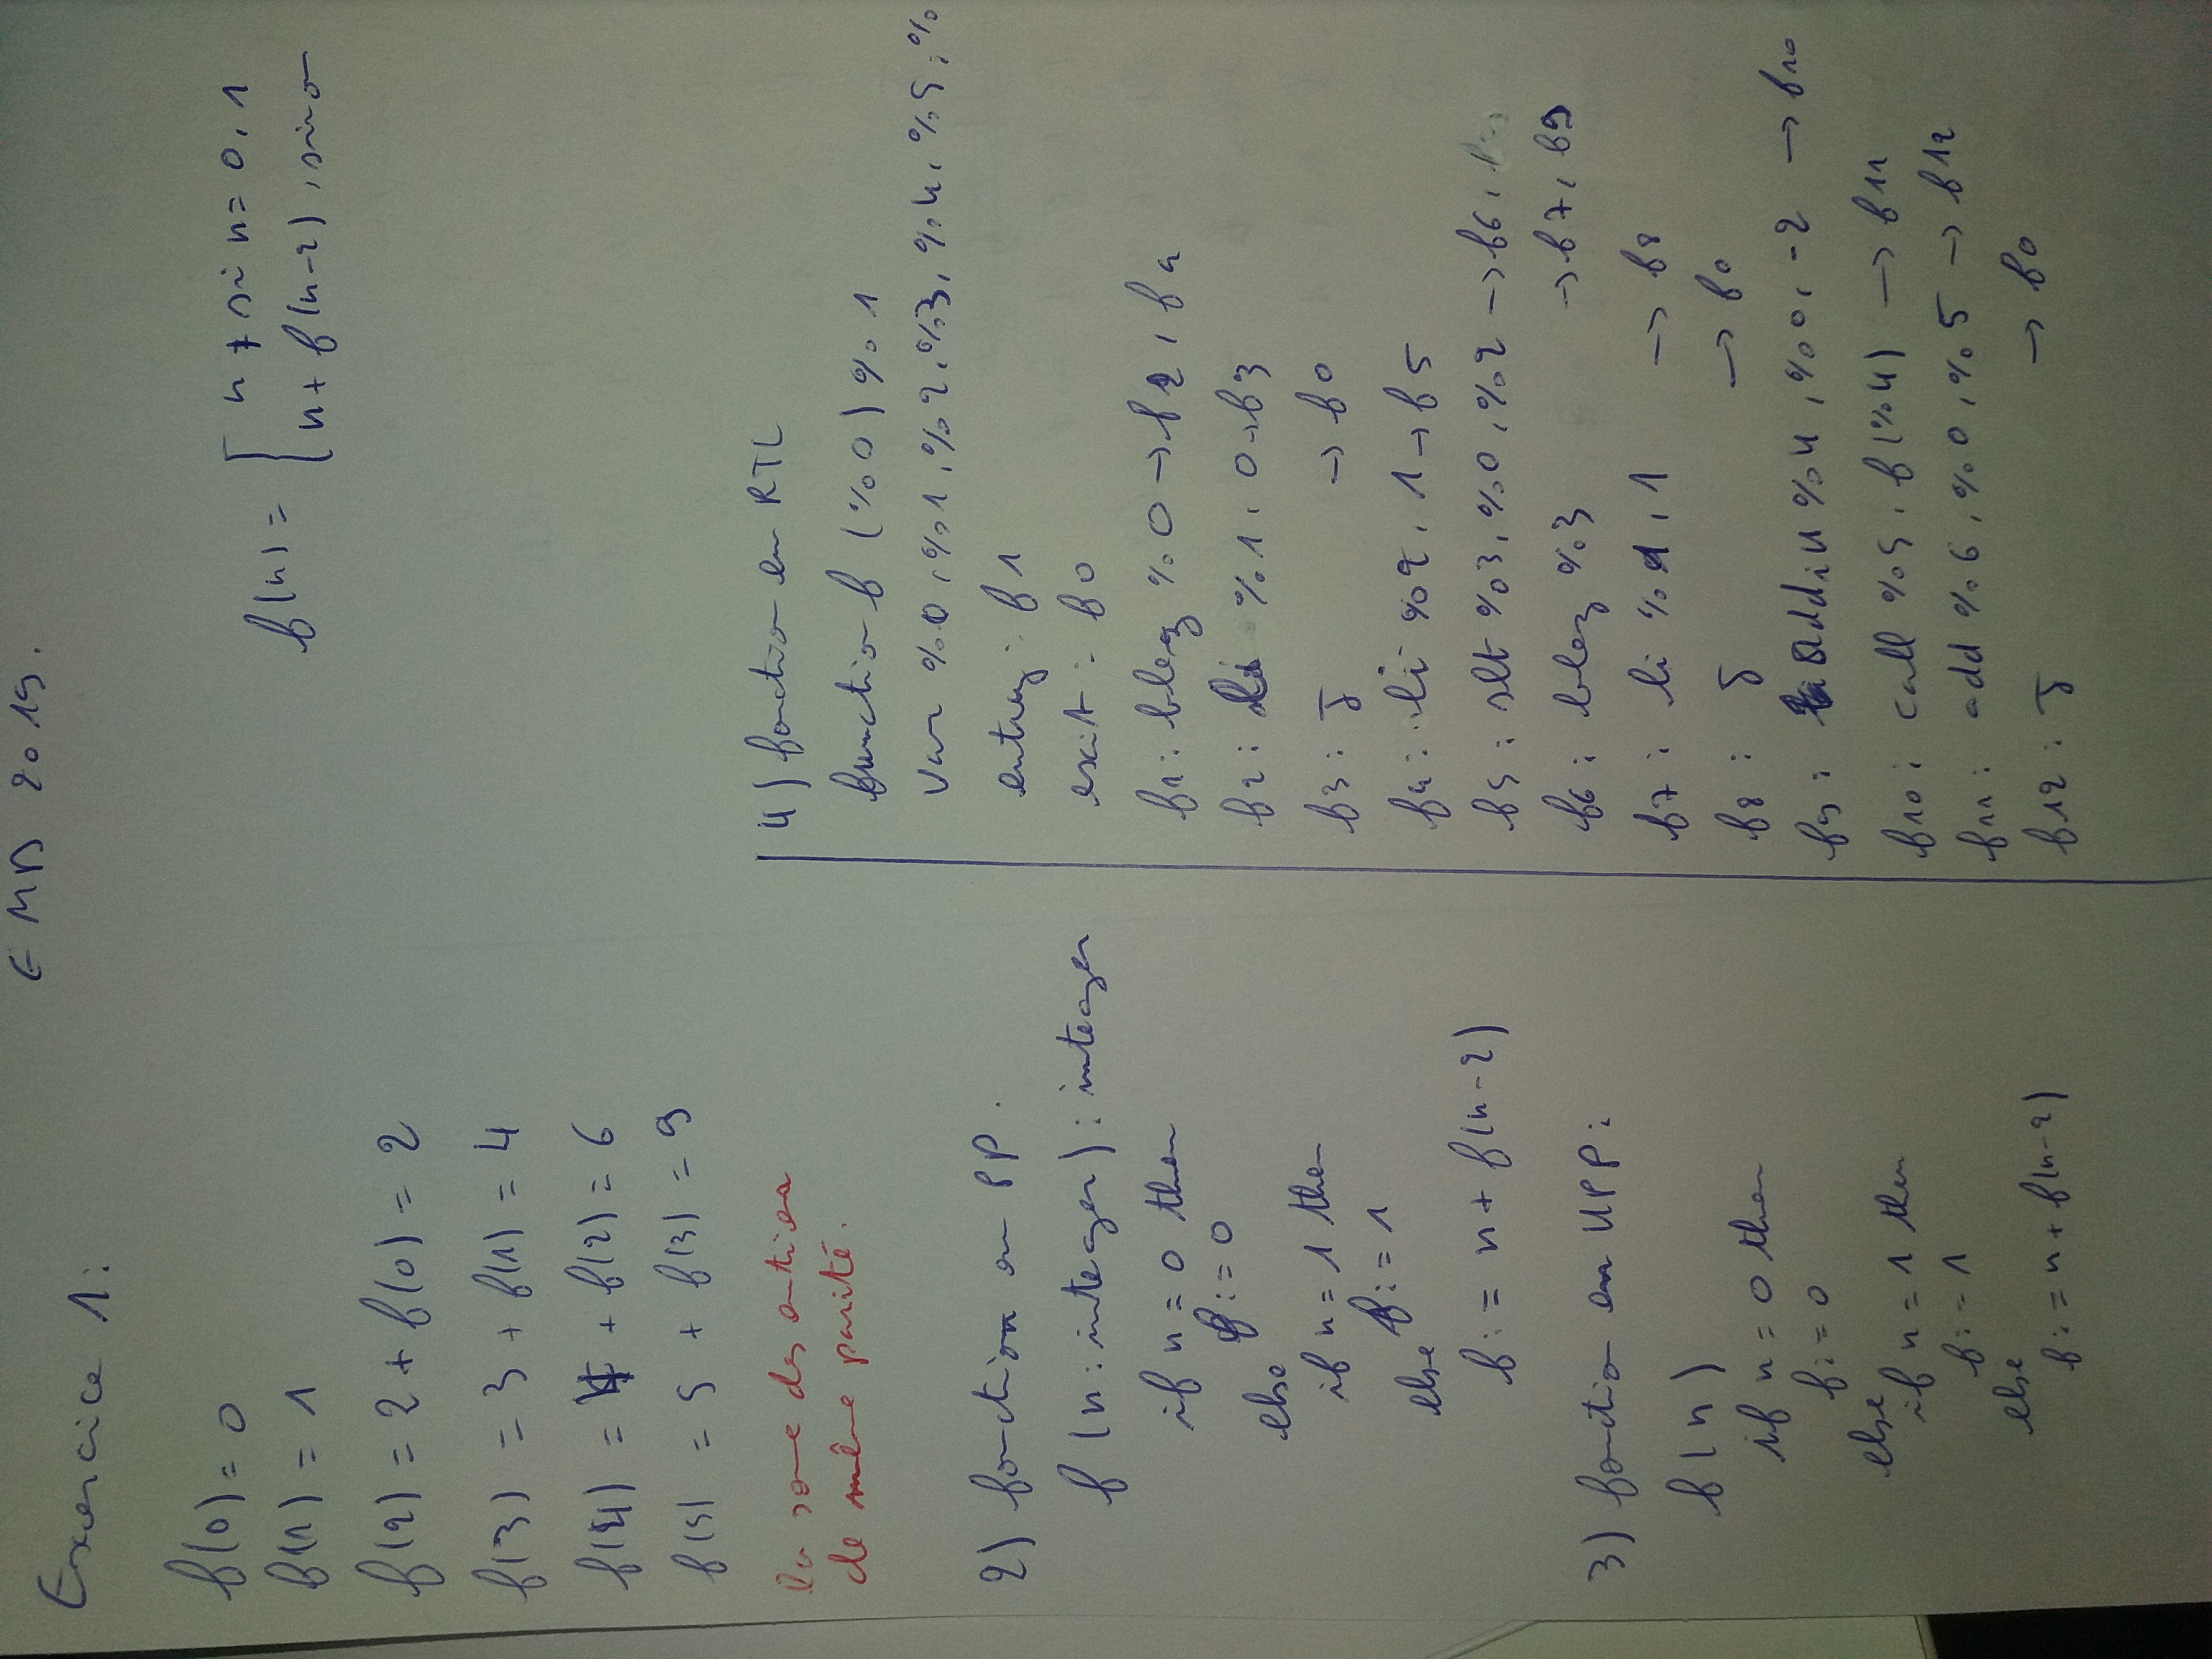 EMD 2019.
Exercice 1:
f(0) = 0
f(1) = 1
f(2) = 2 + f(0) = 2
f(3) = 3 + f(1) = 4
f(4) = 4 + f(2) = 6
f(5) = 5 + f(3) = 9
f(n) = { n , si n = 0, 1
n + f(n-2) , sinon
la some des entiers
de même parité.
2) fonction en PP.
f (n : integer) : integer
if n = 0 then
f := 0
else
if n = 1 then
f := 1
else
f := n + f(n-2)
3) fonction en UPP :
f(n)
if n = 0 then
f := 0
else
if n = 1 then
f := 1
else
f := n + f(n-2)
4) fonction en RTL
function f (%0) %1
Var %0, %1, %2, %3, %4, %5, %
entry : f1
exit : f0
f1 : blez %0 → f2, f4
f2 : li %1, 0 → f3
f3 : J → f0
f4 : li %2, 1 → f5
f5 : slt %3, %0, %2 → f6,
f6 : blez %3 → f7, f9
f7 : li %1, 1 → f8
f8 : J → f0
f9 : addiu %4, %0, -2 → f10
f10 : call %5, f(%4) → f11
f11 : add %6, %0, %5 → f12
f12 : J → f0